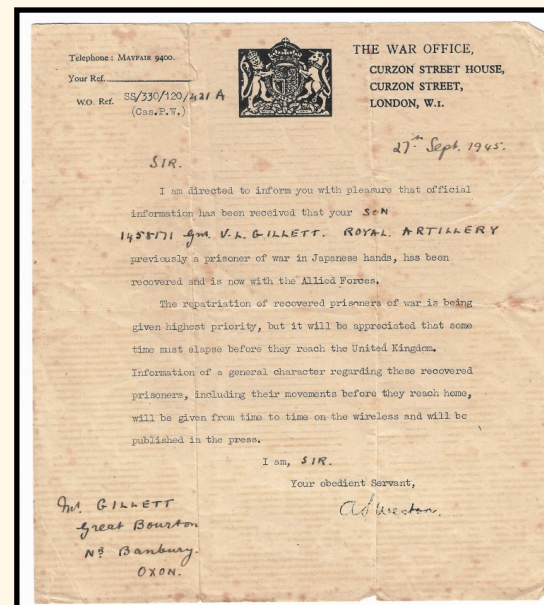 Telephone: MAYFAIR 9400.
Your Ref.
W.O. Ref. SS/330/120/421 A
(Cas.P.W.)
THE WAR OFFICE,
CURZON STREET HOUSE,
CURZON STREET,
LONDON, W.1.
27th Sept. 1945.
SIR.
I am directed to inform you with pleasure that official
information has been received that your SON
1458171 Gnr. V.L. GILLETT. ROYAL ARTILLERY
previously a prisoner of war in Japanese hands, has been
recovered and is now with the Allied Forces.
The repatriation of recovered prisoners of war is being
given highest priority, but it will be appreciated that some
time must elapse before they reach the United Kingdom.
Information of a general character regarding these recovered
prisoners, including their movements before they reach home,
will be given from time to time on the wireless and will be
published in the press.
I am, SIR.
Your obedient Servant,
Mr. GILLETT
Great Bourton
Nr Banbury.
OXON.